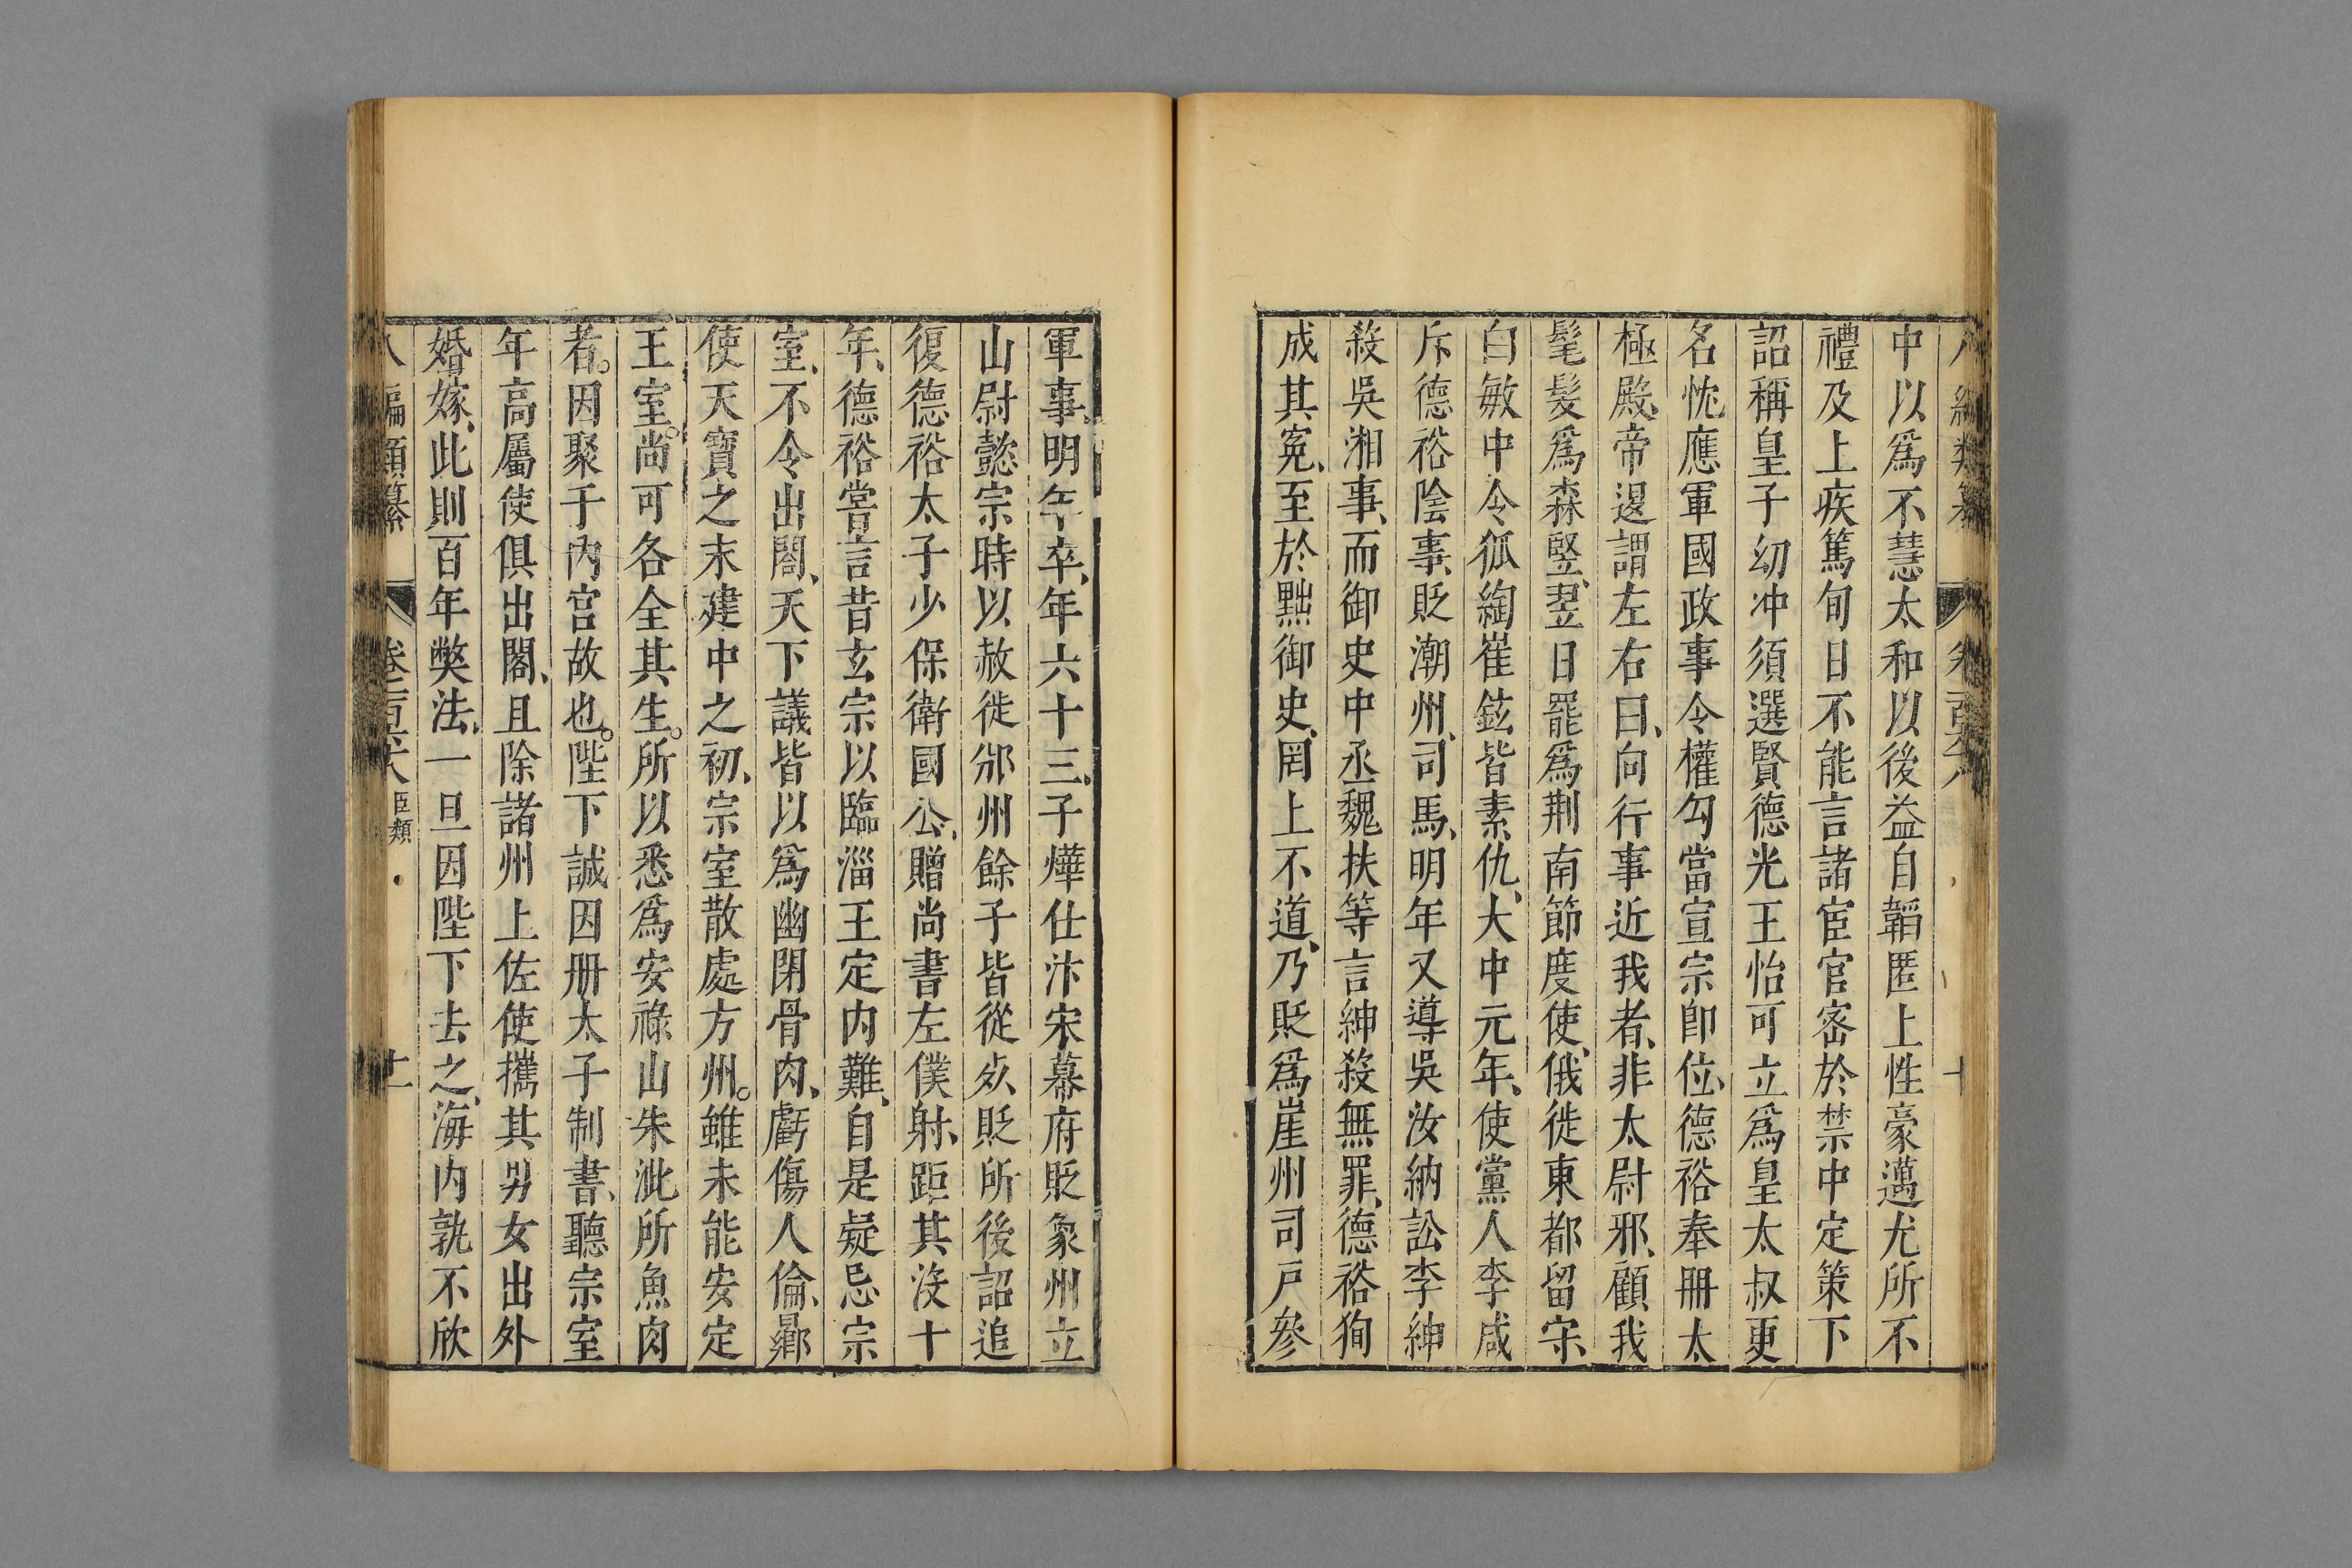 中以爲不慧太和以後益自韜匿上性豪邁尤所不
禮及上疾篤旬日不能言諸宦官密於禁中定策下
詔稱皇子幼冲須選賢德光王怡可立爲皇太叔更
名忱應軍國政事令權勾當宣宗卽位、德裕奉冊太
極殿、帝退謂左右曰、向行事近我者、非太尉邪、顧我
髦髮爲森竪、翌日罷爲荆南節度使、俄徙東都留守、
白敏中令狐綯崔鉉皆素仇、大中元年、使黨人李咸
斥德裕陰事、貶潮州、司馬、明年又導吳汝納訟李紳
殺吳湘事、而御史中丞魏扶等言紳殺無罪、德裕徇
成其冤、至於黜御史、罔上不道、乃貶爲崖州司戶參
軍事、明年卒、年六十三、子燁仕汴宋幕府貶象州立
山尉懿宗時以赦徙郴州餘子皆從死貶所後詔追
復德裕太子少保衛國公、贈尚書左僕射、距其沒十
年、德裕嘗言昔玄宗以臨淄王定内難、自是疑忌宗
室、不令出閤、天下議皆以爲幽閉骨肉、虧傷人倫、曏
使天寶之末建中之初、宗室散處方州。雖未能安定
王室。尚可各全其生。所以悉爲安祿山朱泚所魚肉
者。因聚于内宮故也。陛下誠因冊太子制書、聽宗室
年高屬使俱出閣、且除諸州上佐使攜其男女出外
婚嫁、此則百年弊法、一旦因陛下去之、海内孰不欣
八編類纂 卷二百六 臣類 十一